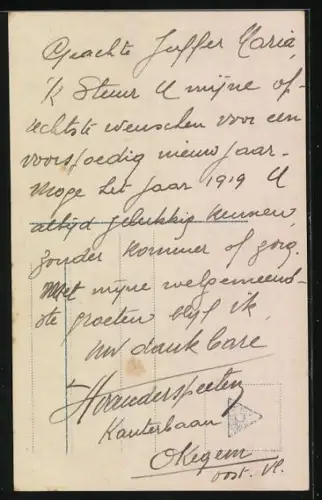 Geachte Juffer Maria,
'k Stuur U mijne op-
rechtste wenschen voor een
voorspoedig nieuwjaar.
Moge het jaar 1919 U
altijd gelukkig kennen,
zonder kommer of zorg.
Met mijne welgemeend-
ste groeten blijf ik,
Uw dankbare
H. Vanderspeeten
Kauterbaan
Okegem
Oost. Vl.